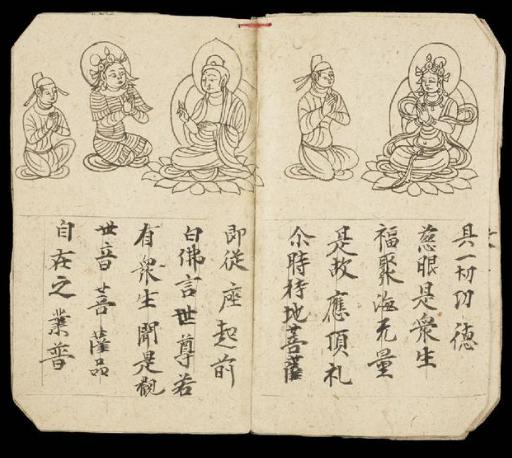 具一切功德
慈眼是衆生
福聚海无量
是故應頂礼
尒時持地菩薩
即従座起前
白佛言世尊若
有衆生聞是觀
世音菩薩品
自在之業普